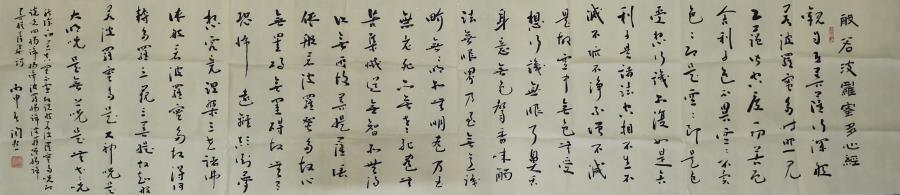 般若波羅蜜多心經
觀自在菩薩行深般
若波羅蜜多時照見
五蘊皆空度一切苦厄
舍利子色不異空空不異
色色即是空空即是色
受想行識亦復如是舍
利子是諸法空相不生不
滅不垢不淨不增不減
是故空中無色無受
想行識無眼耳鼻舌
身意無色聲香味觸
法無眼界乃至無意識
界無無明亦無明盡乃至
無老死亦無老死盡無
苦集滅道無智亦無得
以無所得故菩提薩埵
依般若波羅蜜多故心
無罣礙無罣礙故無有
恐怖遠離顛倒夢
想究竟涅槃三世諸佛
依般若波羅蜜多故得阿
耨多羅三藐三菩提故知般
若波羅蜜多是大神咒是
大明咒是無上咒是無等等咒
能除一切苦真實不虛故說般若波羅蜜多咒即
說咒曰揭諦揭諦波羅揭諦波羅僧揭諦
菩提薩婆訶
丙申